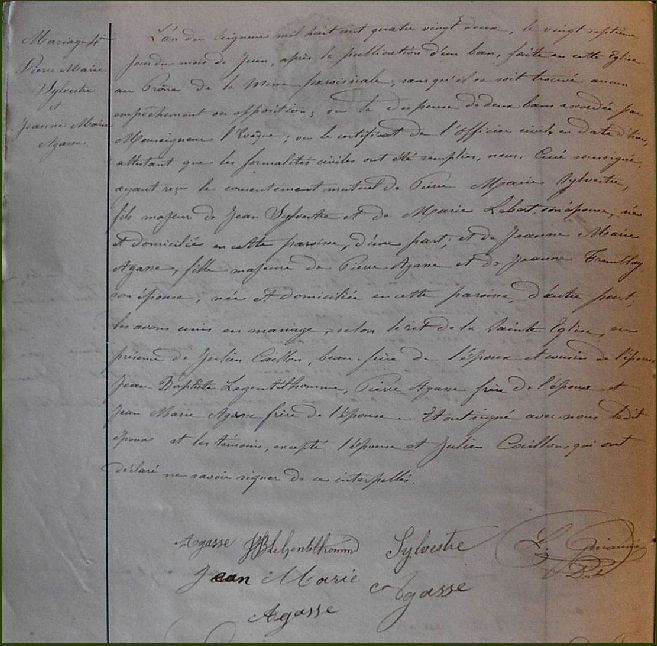 Mariage de
Pierre Marie
Sylvestre
et
Jeanne Marie
Agasse.
L'an du Seigneur mil huit cent quatre vingt deux, le vingt septième
jour du mois de Juin, après la publication d'un ban, faite en cette Eglise
au Prône de la Messe paroissiale, sans qu'il se soit trouvé aucun
empêchement ou opposition; vu la dispense de deux bans accordée par
Monseigneur l'Evêque; vu le certificat de l'Officier civil en date d'hier,
attestant que les formalités civiles ont été remplies, nous, Curé soussigné,
ayant reçu le consentement mutuel de Pierre Marie Sylvestre,
fils majeur de Jean Sylvestre et de Marie Lebert, son épouse, née
et domiciliée en cette paroisse, d'une part; et de Jeanne Marie
Agasse, fille majeure de Pierre Agasse et de Jeanne Tremblay
son épouse, née et domiciliée en cette paroisse, d'autre part;
les avons unis en mariage, selon le rit de la Sainte Eglise, en
présence de Julien Caillon, beau-frère de l'époux et cousin de l'épouse
Jean Baptiste Legentilhomme, Pierre Agasse frère de l'épouse et
Jean Marie Agasse frère de l'épouse. Et ont signé avec nous ledit
époux et les témoins, excepté l'épouse et Julien Caillon, qui ont
déclaré ne savoir signer de ce interpellés.
Agasse JB Legentilhomme Sylvestre
Jean Marie Agasse
Agasse